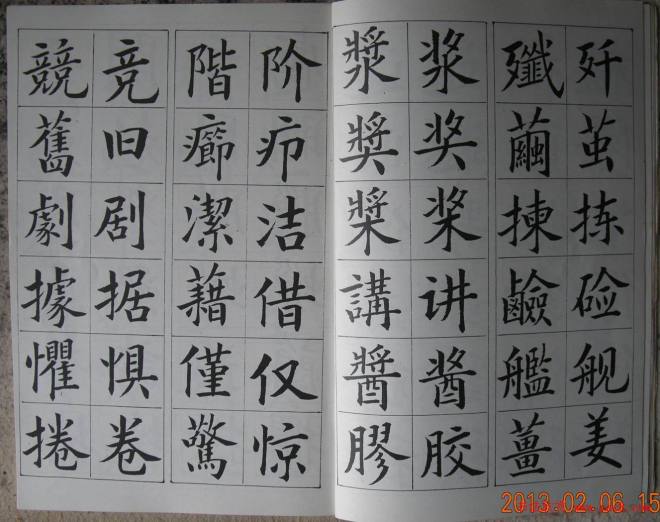 殲 歼
繭 茧
揀 拣
鹼 硷
艦 舰
薑 姜
漿 浆
獎 奖
槳 桨
講 讲
醬 酱
膠 胶
階 阶
癤 疖
潔 洁
藉 借
僅 仅
驚 惊
競 竞
舊 旧
劇 剧
據 据
懼 惧
捲 卷
2013.02.06 15